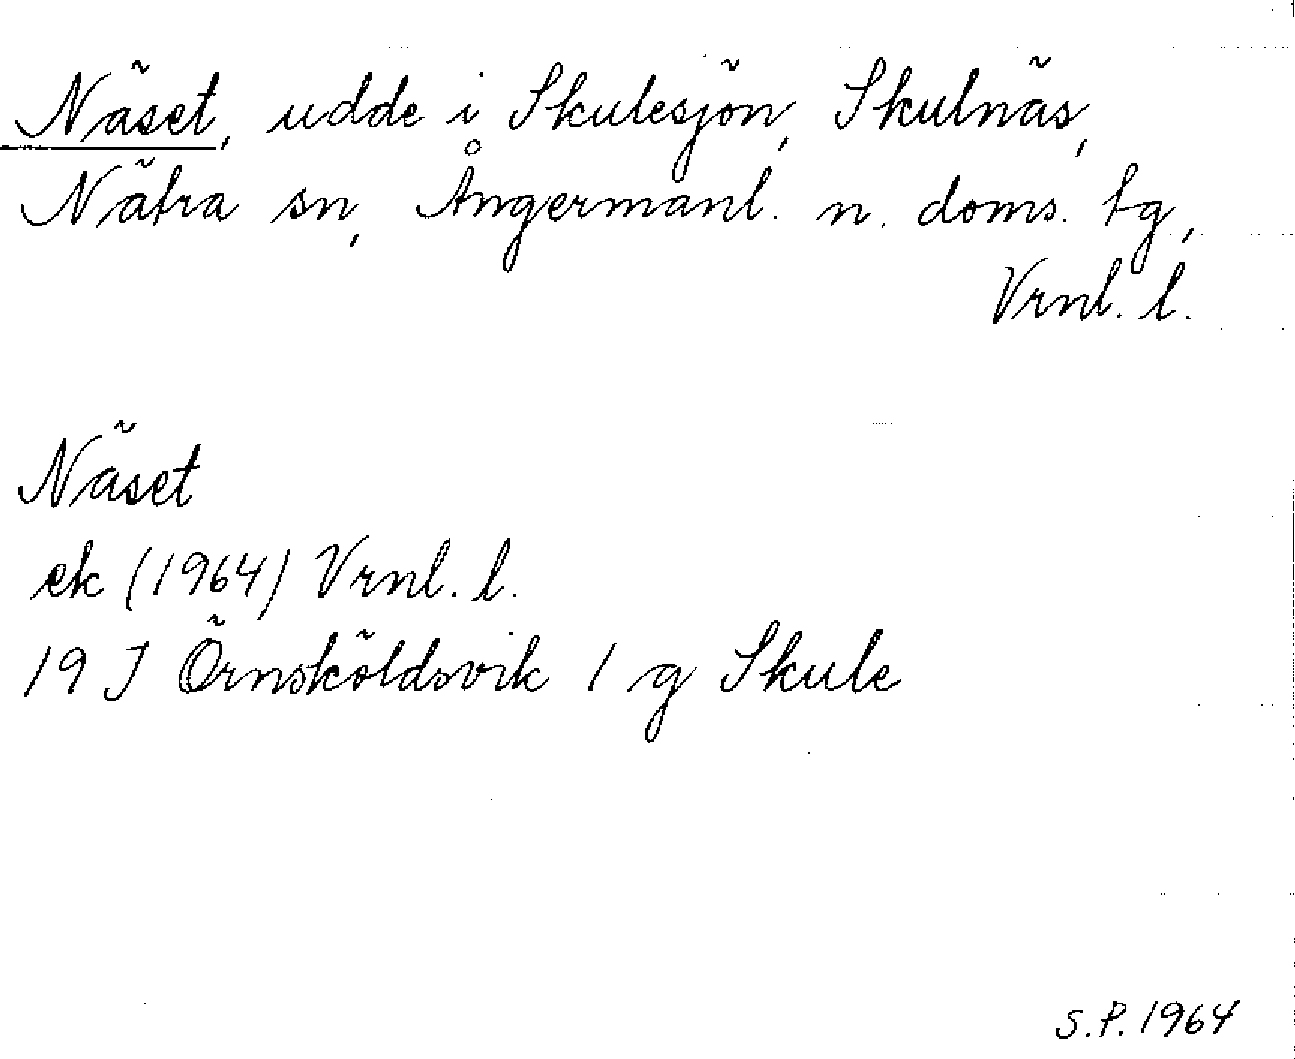 Näset, udde i Skulesjön, Skulnäs,
Nätra sn, Ångermanl. n. doms. tg,
Vrnl. l.
Näset
ek (1964) Vrnl. l.
19 J Örnsköldsvik 1 g Skule
S.P. 1964